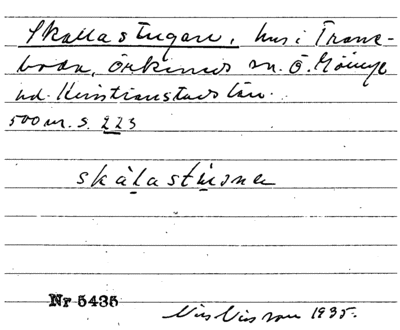 Skallastugan, hus i Trane-
boda, Örkeneds sn. Ö. Göinge
hd. Kristianstads län.
500 m. S. 223
skàlastúgna
Nr 5435
Nils Nilsson 1935.